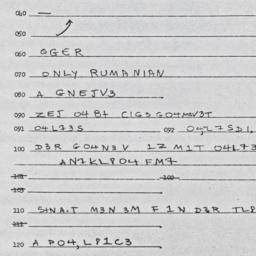 040 —
050
060 OGER
070 ONLY RUMANIAN
080 A GNEJV3
090 ZEJ 04 8t CIGS GO4MAV3T
091 04L73S 092 04,L7SD1,
100 D3R GO4N3V 1Z M1T 04L73
AN7KL8O4 FM7
101 102
110 S4NA.T M3N 3M F 1 N D3R TL8
111
120 A PO4,L81C3